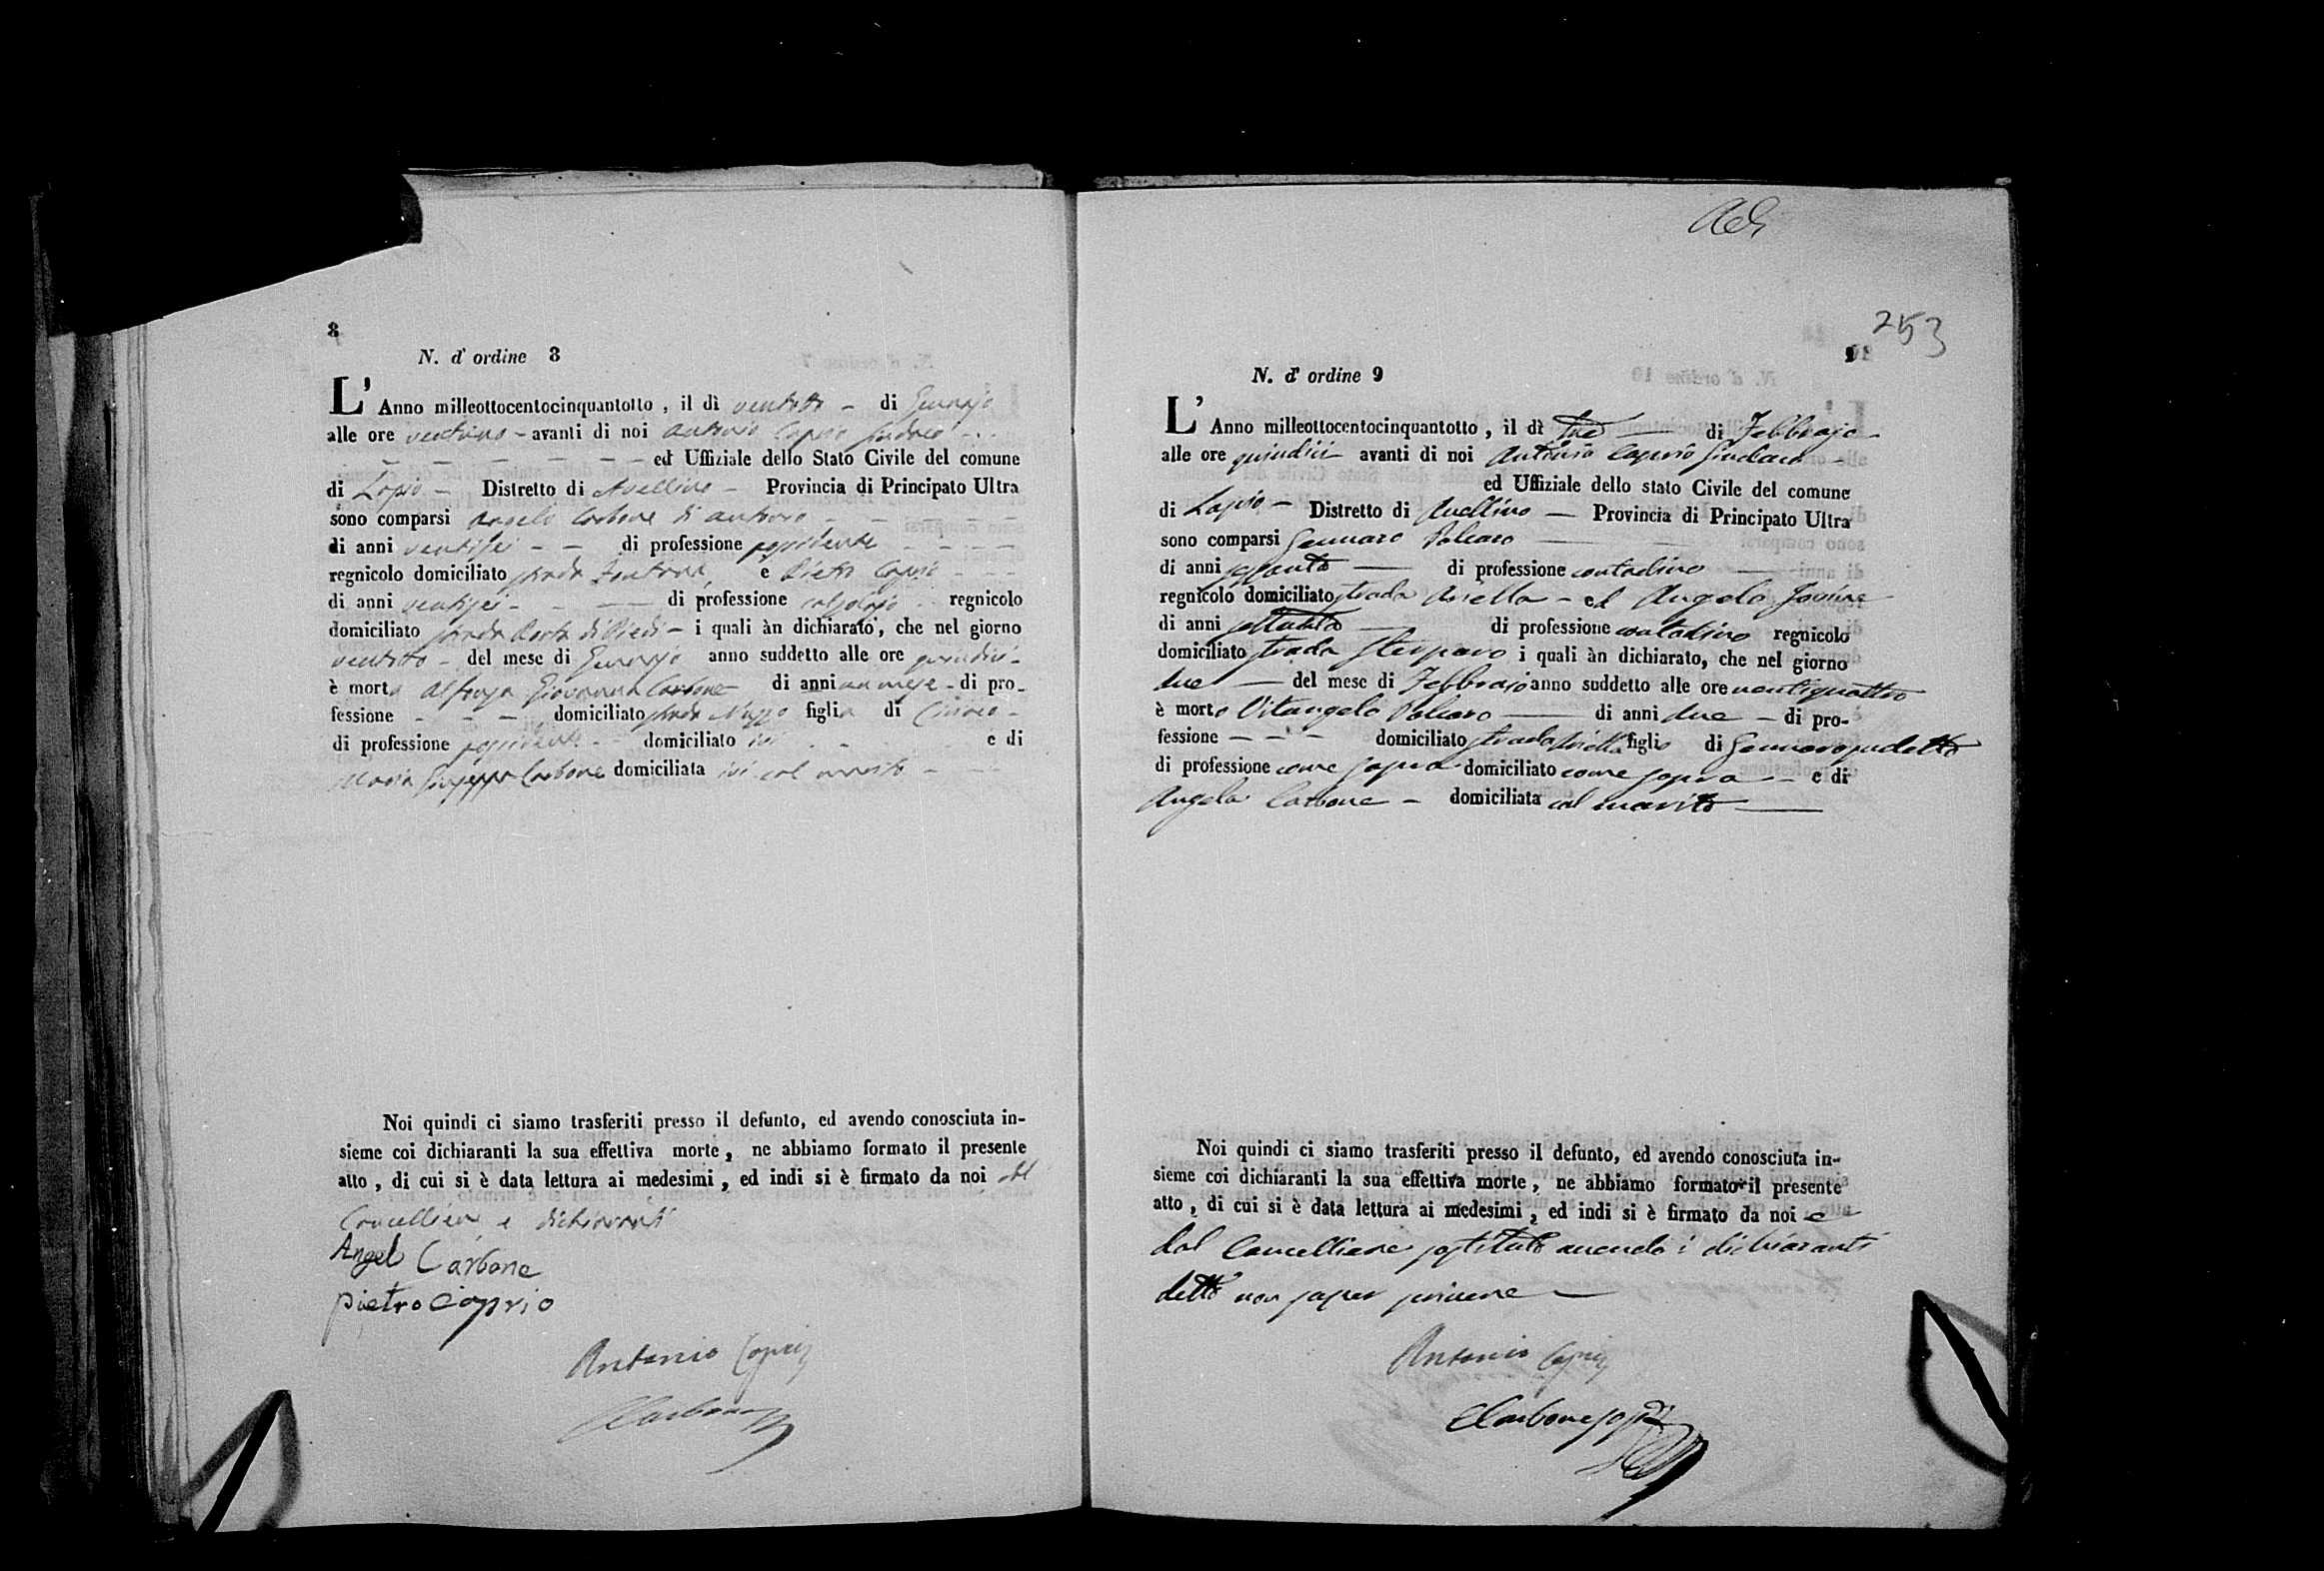 8
N. d' ordine 8
L' Anno milleottocentocinquantotto, il dì ventotto – di Gennajo
alle ore ventuno – avanti di noi Antonio Caprio Sindaco
ed Uffiziale dello Stato Civile del comune
di Lapio – Distretto di Avellino – Provincia di Principato Ultra
sono comparsi Angelo Carbone di Antonio
di anni ventisei – – di professione possidente
regnicolo domiciliato strada Fontana e Pietro Caprio
di anni ventisei – di professione calzolajo regnicolo
domiciliato strada Porta di Piedi – i quali àn dichiarato, che nel giorno
ventotto – del mese di Gennajo anno suddetto alle ore quindici –
è morta Alfonsa Giovanna Carbone di anni un mese – di pro-
fessione – – – domiciliato strada Nuzzo figlia di Ciriaco –
di professione possidente – domiciliato ivi e di
Maria Giuseppa Carbone domiciliata ivi col marito –
Noi quindi ci siamo trasferiti presso il defunto, ed avendo conosciuta in-
sieme coi dichiaranti la sua effettiva morte, ne abbiamo formato il presente
atto, di cui si è data lettura ai medesimi, ed indi si è firmato da noi dal
Cancelliere e dichiaranti
Angel Carbone
Pietro Caprio
Antonio Caprio
Carbone
253
9
N. d' ordine 9
L' Anno milleottocentocinquantotto, il dì tre — di Febbrajo
alle ore quindici avanti di noi Antonio Caprio Sindaco
ed Uffiziale dello stato Civile del comune
di Lapio – Distretto di Avellino — Provincia di Principato Ultra
sono comparsi Gennaro Polcaro —
di anni — di professione contadino —
regnicolo domiciliato strada Ariella – ed Angelo
di anni settanta — di professione contadino regnicolo
domiciliato strada Sterparo i quali àn dichiarato, che nel giorno
due — del mese di Febbrajo anno suddetto alle ore ventiquattro
è morto Vitangelo Polcaro — di anni due – di pro-
fessione – – – domiciliato strada Ariella figlio di Gennaro sudetto
di professione come sopra domiciliato come sopra – e di
Angela Carbone – domiciliata col marito —
Noi quindi ci siamo trasferiti presso il defunto, ed avendo conosciuta in-
sieme coi dichiaranti la sua effettiva morte, ne abbiamo formato il presente
atto, di cui si è data lettura ai medesimi, ed indi si è firmato da noi e
dal Cancelliere sostituto avendo i dichiaranti
detto non saper scrivere —
Antonio Caprio
Carbone sost